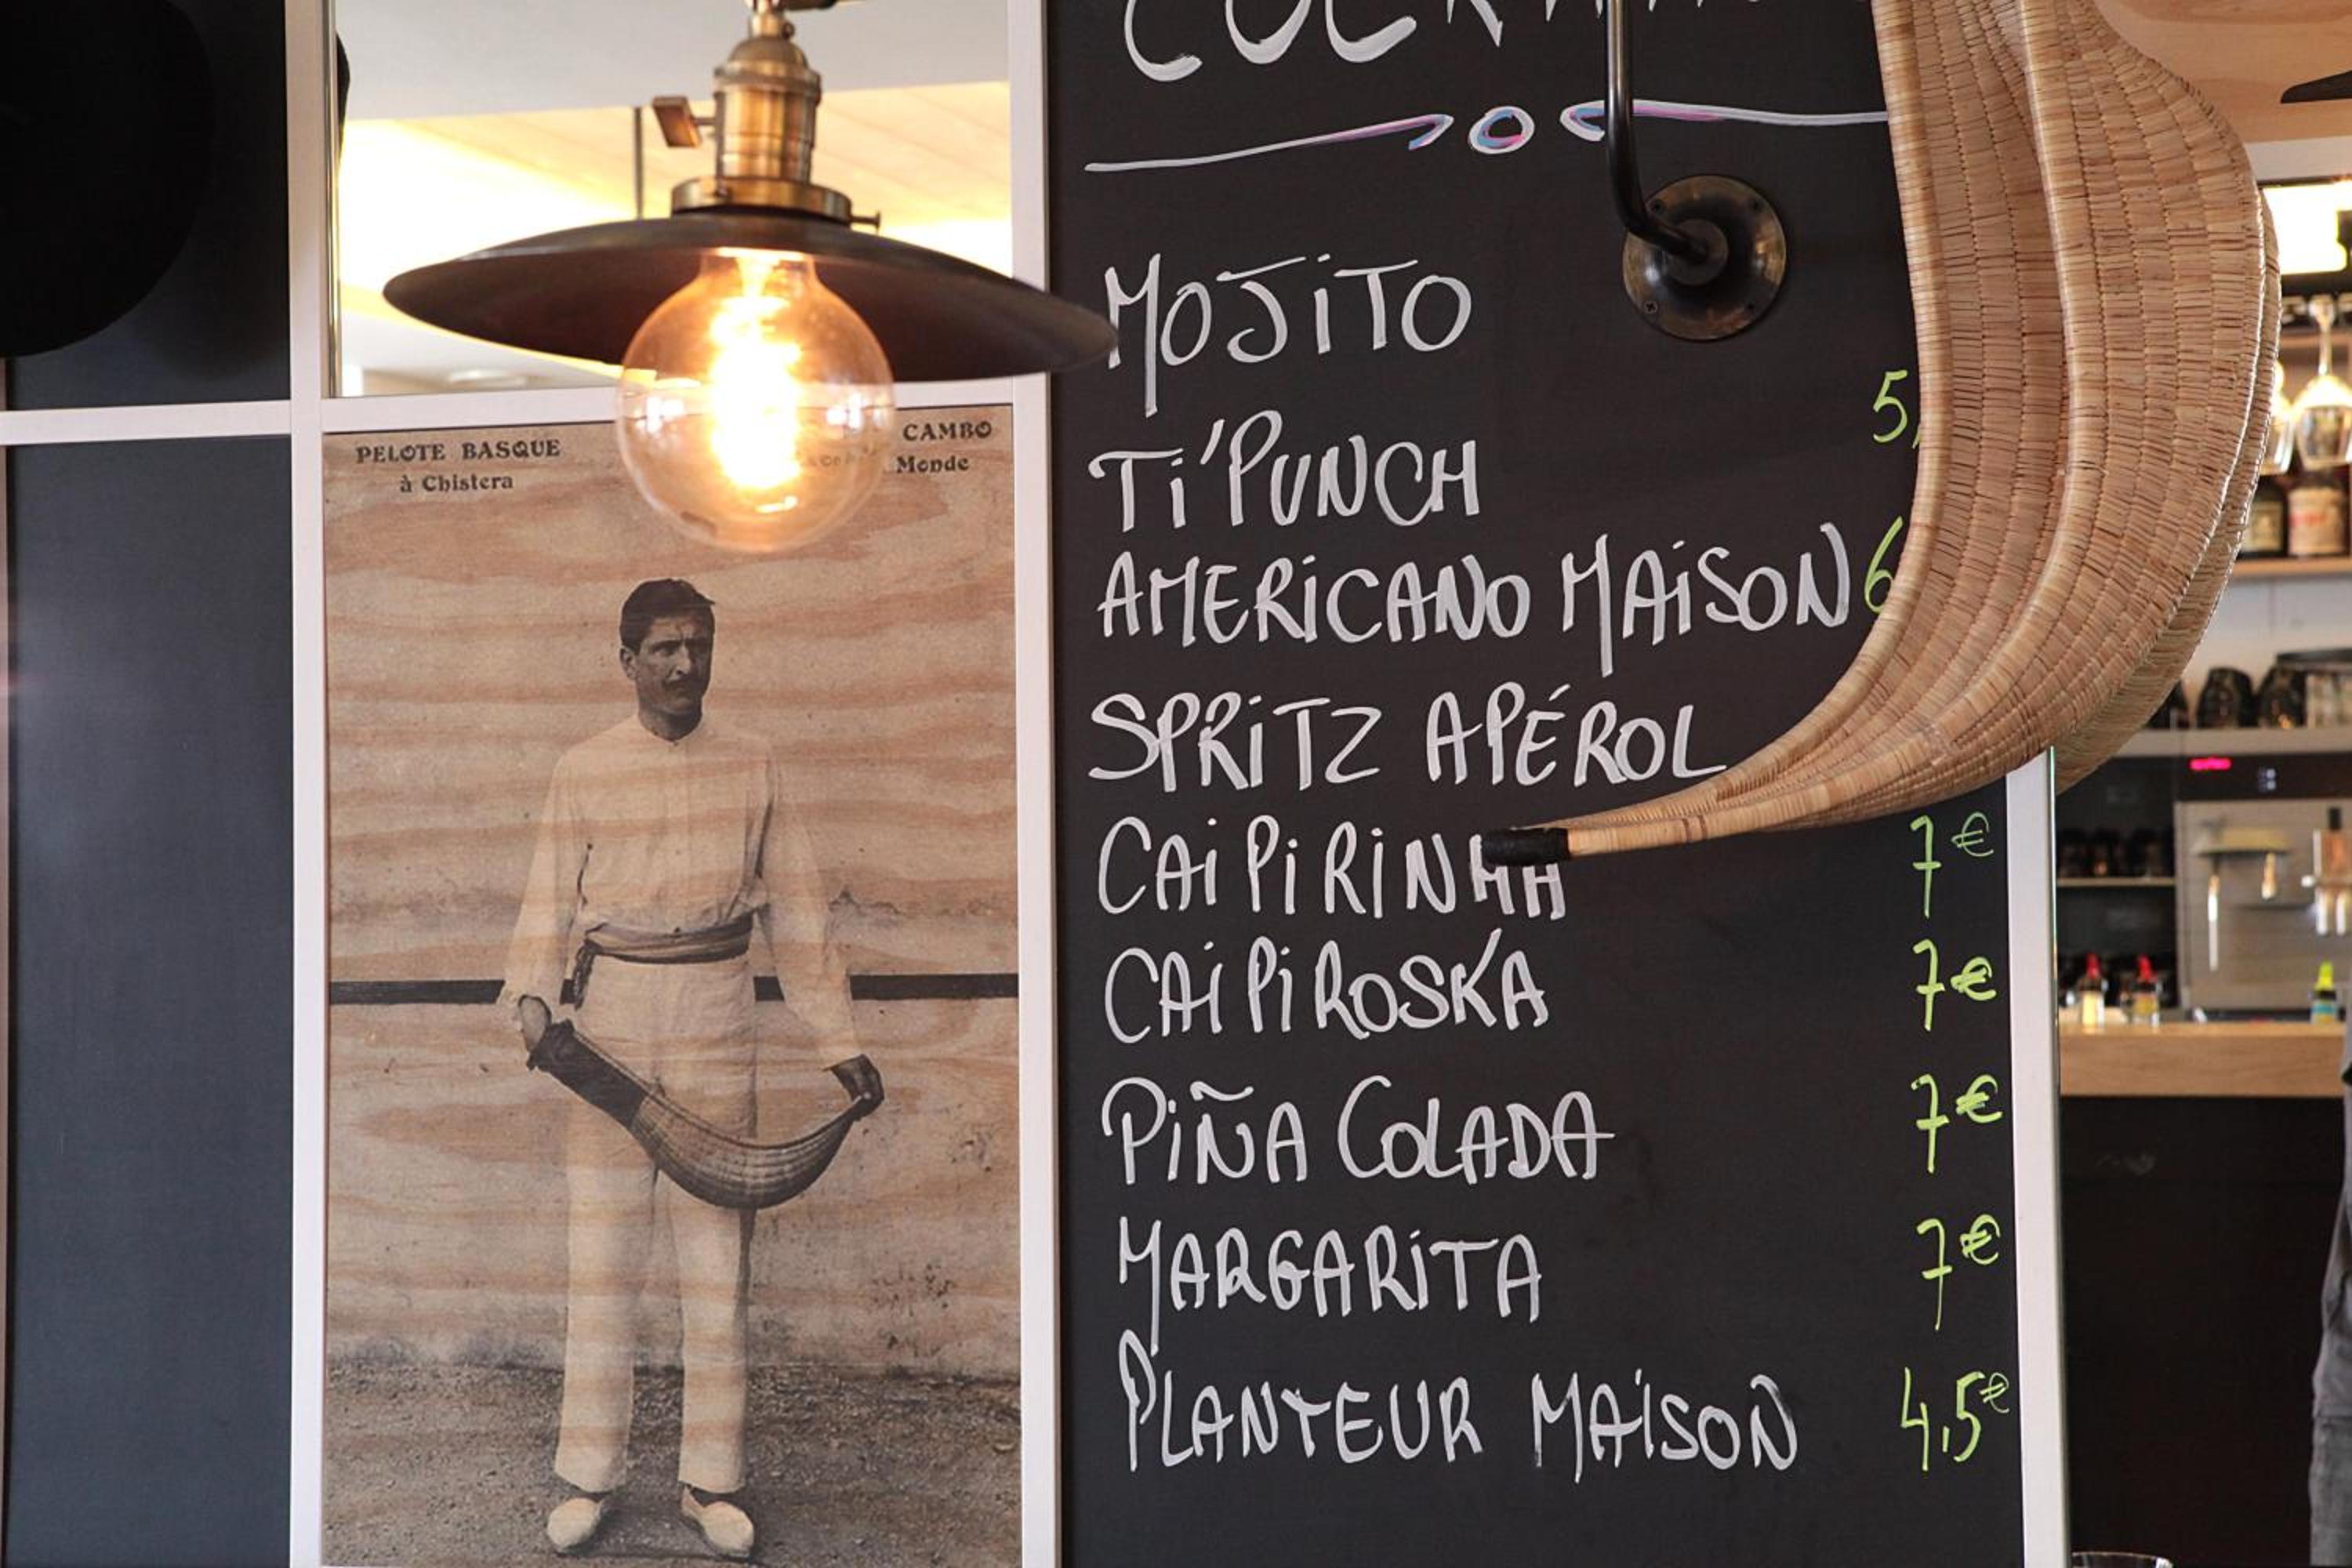 PELOTE BASQUE
à Chistera
CAMBO
Monde
MOJITO
Ti'PUNCH 5,
AMERICANO MAISON 6
SPRITZ APÉROL
CAIPIRINHA 7€
CAIPIROSKA 7€
PIÑA COLADA 7€
MARGARITA 7€
PLANTEUR MAISON 4,5€